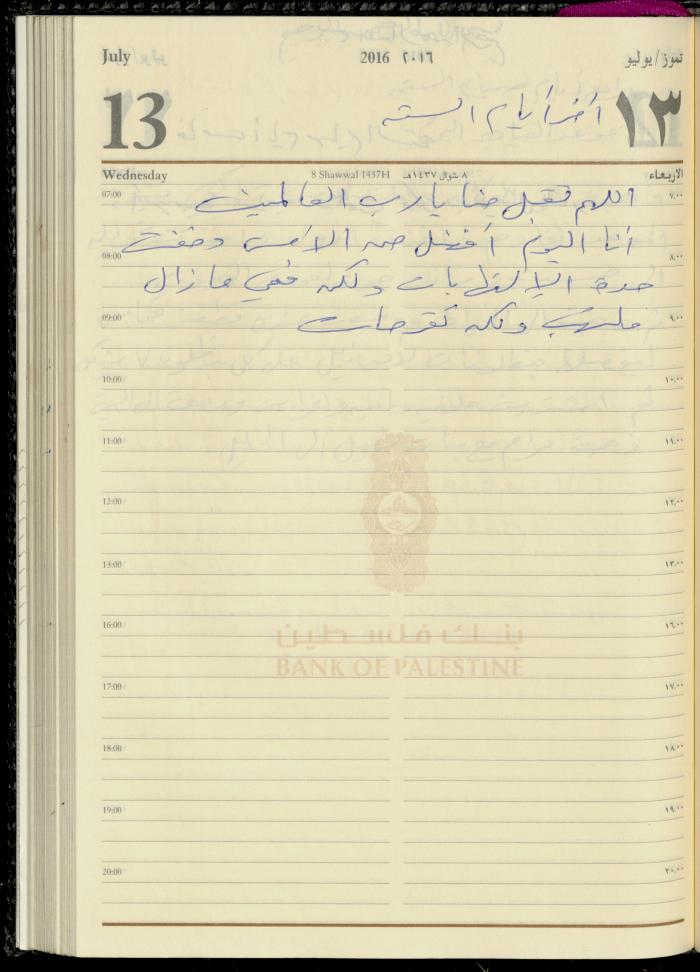 July 2016 ٢٠١٦ تموز/يوليو
13 أخر أيام الستة ١٣
Wednesday 8 Shawwal 1437H ٨ شوال ١٤٣٧هـ الاربعاء
07:00 اللهم تقبل منا يا رب العالمين ٧,٠٠
أنا اليوم أفضل من الأمس وخفت
08:00 ٨,٠٠
حدة الإلتهابات ولكن فمي مازال
09:00 ملتهب ولكن تقرحات ٩,٠٠
10:00 ١٠,٠٠
11:00 ١١,٠٠
12:00 ١٢,٠٠
13:00 ١٣,٠٠
16:00 ١٦,٠٠
بنك فلسطين
BANK OF PALESTINE
17:00 ١٧,٠٠
18:00 ١٨,٠٠
19:00 ١٩,٠٠
20:00 ٢٠,٠٠